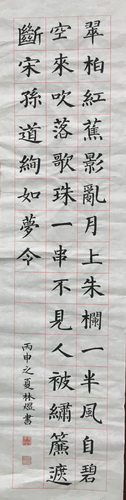 翠柏紅蕉影亂月上朱欄一半風自碧
空來吹落歌珠一串不見人被繡簾遮
斷宋孫道絢如夢令
丙申之夏林煜書